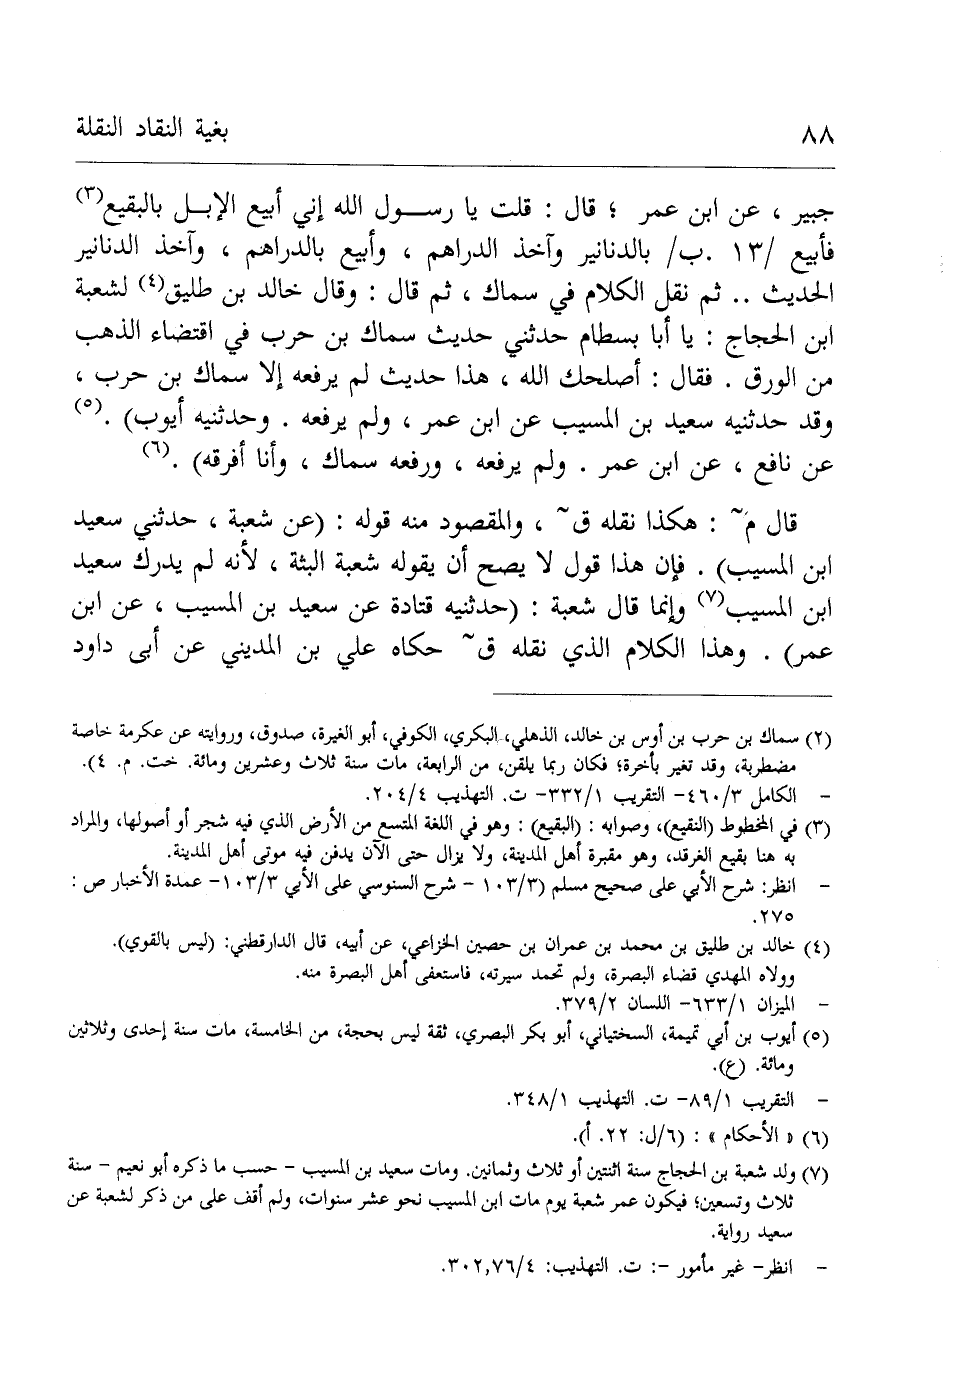 ٨٨ بغية النقاد النقلة
جبير ، عن ابن عمر ؛ قال : قلت يا رسول الله إني أبيع الإبل بالبقيع(٣)
فأبيع /١٣ .ب/ بالدنانير وآخذ الدراهم ، وأبيع بالدراهم ، وآخذ الدنانير
الحديث .. ثم نقل الكلام في سماك ، ثم قال : وقال خالد بن طليق(٤) لشعبة
ابن الحجاج : يا أبا بسطام حدثني حديث سماك بن حرب في اقتضاء الذهب
من الورق . فقال : أصلحك الله ، هذا حديث لم يرفعه إلا سماك بن حرب ،
وقد حدثنيه سعيد بن المسيب عن ابن عمر ، ولم يرفعه . وحدثنيه أيوب) .(٥)
عن نافع ، عن ابن عمر . ولم يرفعه ، ورفعه سماك ، وأنا أفرقه) .(٦)
قال م~ : هكذا نقله ق~ ، والمقصود منه قوله : (عن شعبة ، حدثني سعيد
ابن المسيب) . فإن هذا قول لا يصح أن يقوله شعبة البثة ، لأنه لم يدرك سعيد
ابن المسيب(٧) وإنما قال شعبة : (حدثنيه قتادة عن سعيد بن المسيب ، عن ابن
عمر) . وهذا الكلام الذي نقله ق~ حكاه علي بن المديني عن أبى داود
(٢) سماك بن حرب بن أوس بن خالد، الذهلي، البكري، الكوفي، أبو الغيرة، صدوق، وروايته عن عكرمة خاصة
مضطربة، وقد تغير بأخرة؛ فكان ربما يلقن، من الرابعة، مات سنة ثلاث وعشرين ومائة. خت. م. ٤).
- الكامل ٤٦٠/٣- التقريب ٣٣٢/١- ت. التهذيب ٢٠٤/٤.
(٣) في المخطوط (النقيع)، وصوابه : (البقيع) : وهو في اللغة المتسع من الأرض الذي فيه شجر أو أصولها، والمراد
به هنا بقيع الغرقد، وهو مقبرة أهل المدينة، ولا يزال حتى الآن يدفن فيه موتى أهل المدينة.
- انظر: شرح الأبي على صحيح مسلم (١٠٣/٣ - شرح السنوسي على الأبي ١٠٣/٣- عمدة الأخبار ص :
٢٧٥.
(٤) خالد بن طليق بن محمد بن عمران بن حصين الخزاعي، عن أبيه، قال الدارقطني: (ليس بالقوي).
وولاه المهدي قضاء البصرة، ولم تحمد سيرته، فاستعفى أهل البصرة منه.
- الميزان ٦٣٣/١- اللسان ٣٧٩/٢.
(٥) أيوب بن أبي تميمة، السختياني، أبو بكر البصري، ثقة ليس بحجة، من الخامسة، مات سنة إحدى وثلاثين
ومائة. (ع).
- التقريب ٨٩/١- ت. التهذيب ٣٤٨/١.
(٦) « الأحكام » : (٦/ل: ٢٢. أ).
(٧) ولد شعبة بن الحجاج سنة اثنتين أو ثلاث وثمانين. ومات سعيد بن المسيب - حسب ما ذكره أبو نعيم - سنة
ثلاث وتسعين؛ فيكون عمر شعبة يوم مات ابن المسيب نحو عشر سنوات، ولم أقف على من ذكر لشعبة عن
سعيد رواية.
- انظر- غير مأمور -: ت. التهذيب: ٣٠٢,٧٦/٤.